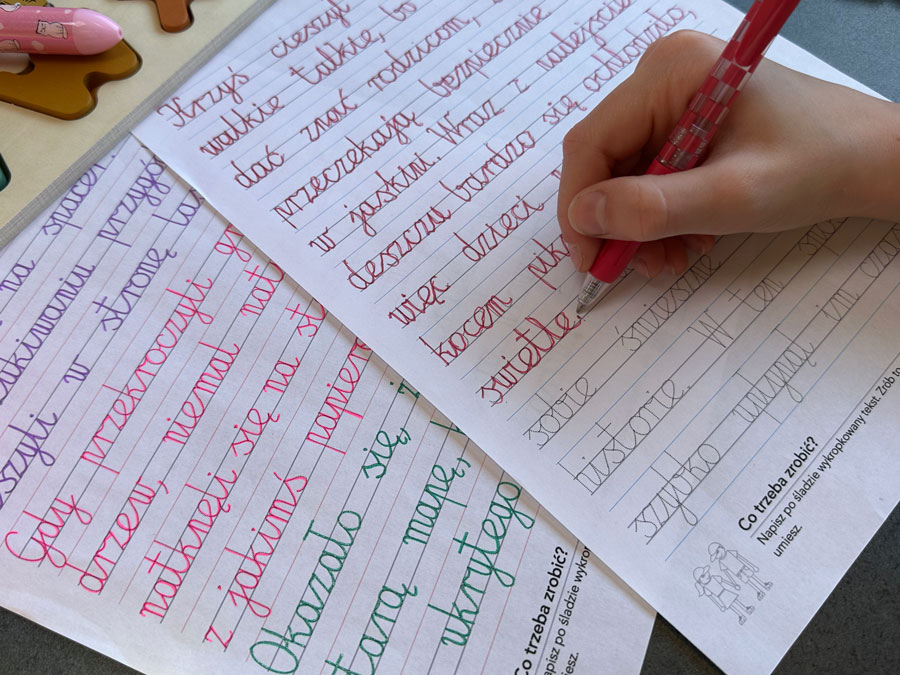 Krzyś cieszył
walkie talkie, bo
dać znać rodzicom,
przeczekają bezpiecznie
w jaskini. Wraz z
deszczu bardzo się ochłodziło,
więc dzieci
kocem
świetle
sobie śmieszne
historie. W ten
szybko upłynął im
Co trzeba zrobić?
Napisz po śladzie wykropkowany tekst. Zrób to
umiesz.
na spacer.
w stronę
Gdy przekroczyli
drzew, niemal
natknęli się na
z jakimś
Okazało się,
mapę,
ukrytego
Co trzeba zrobić?
Napisz po śladzie